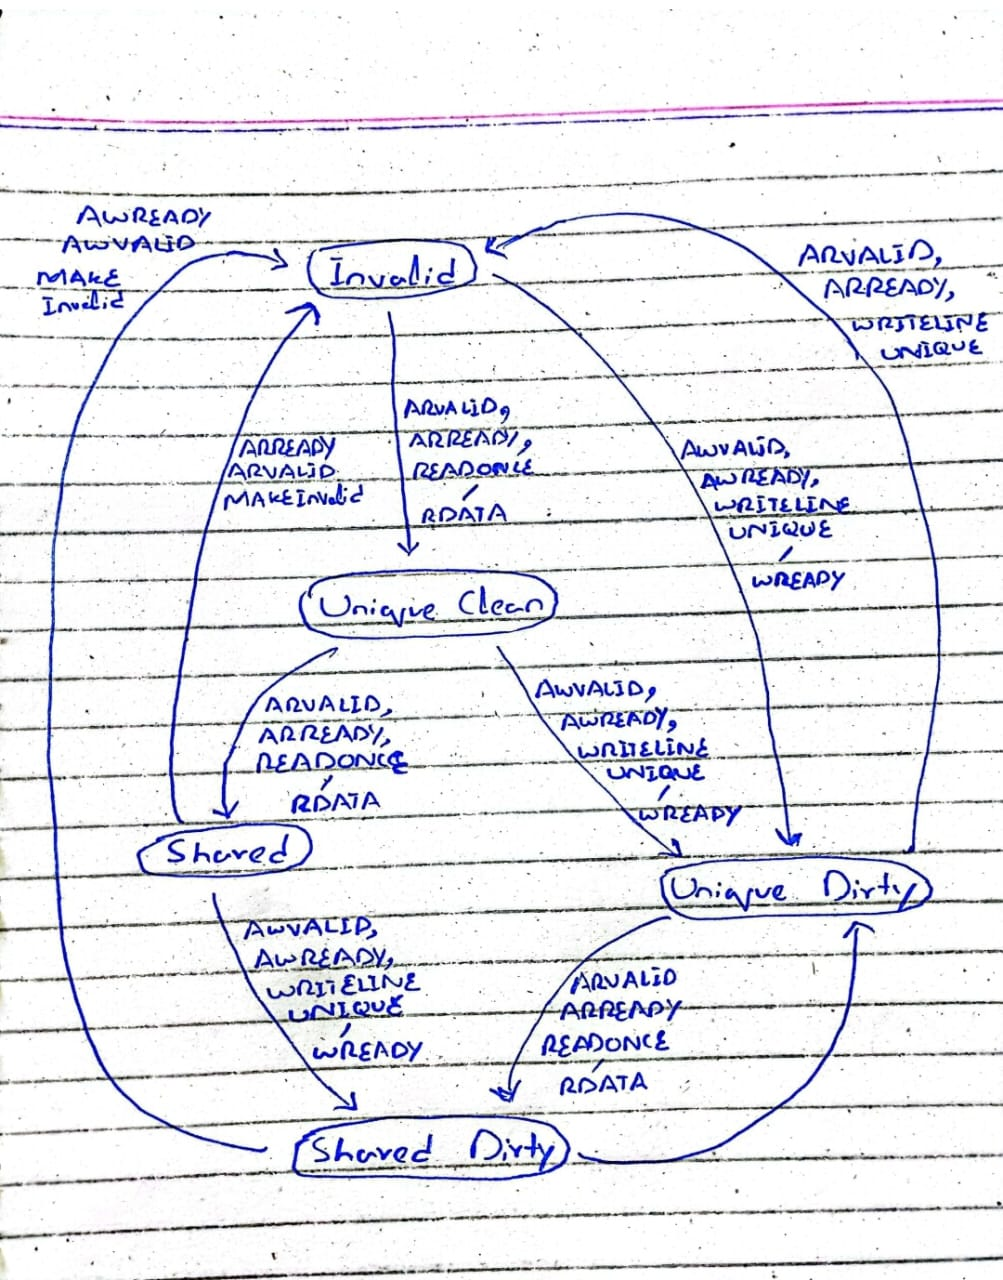 AWREADY
AWVALID
MAKE
Invalid
Invalid
ARVALID,
ARREADY,
WRITELINE
UNIQUE
ARREADY
ARVALID
MAKEInvalid
ARVALID,
ARREADY,
READONCE
/
RDATA
AWVALID,
AWREADY,
WRITELINE
UNIQUE
/
WREADY
Unique Clean
ARVALID,
ARREADY,
READONCE
/
RDATA
AWVALID,
AWREADY,
WRITELINE
UNIQUE
/
WREADY
Shared
Unique Dirty
AWVALID,
AWREADY,
WRITELINE
UNIQUE
/
WREADY
ARVALID
ARREADY
READONCE
/
RDATA
Shared Dirty